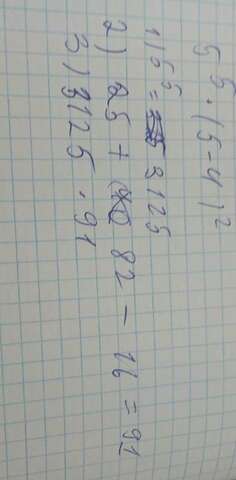 5⁵ · (5-4)²
1) 5⁵ = 3125
2) 25 + 82 - 16 = 91
3) 3125 · 91